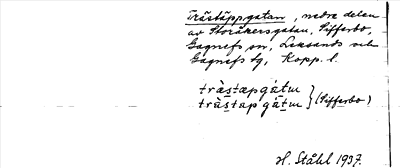 Trästäppgatan, nedre delen
av Storåkersgatan, Sifferbo,
Gagnefs sn, Leksands och
Gagnefs tg, Kopp. l.
träs̲tæpgátu
trà̲s̲tap gā̀tu } (Sifferbo)
H. Ståhl 1937.